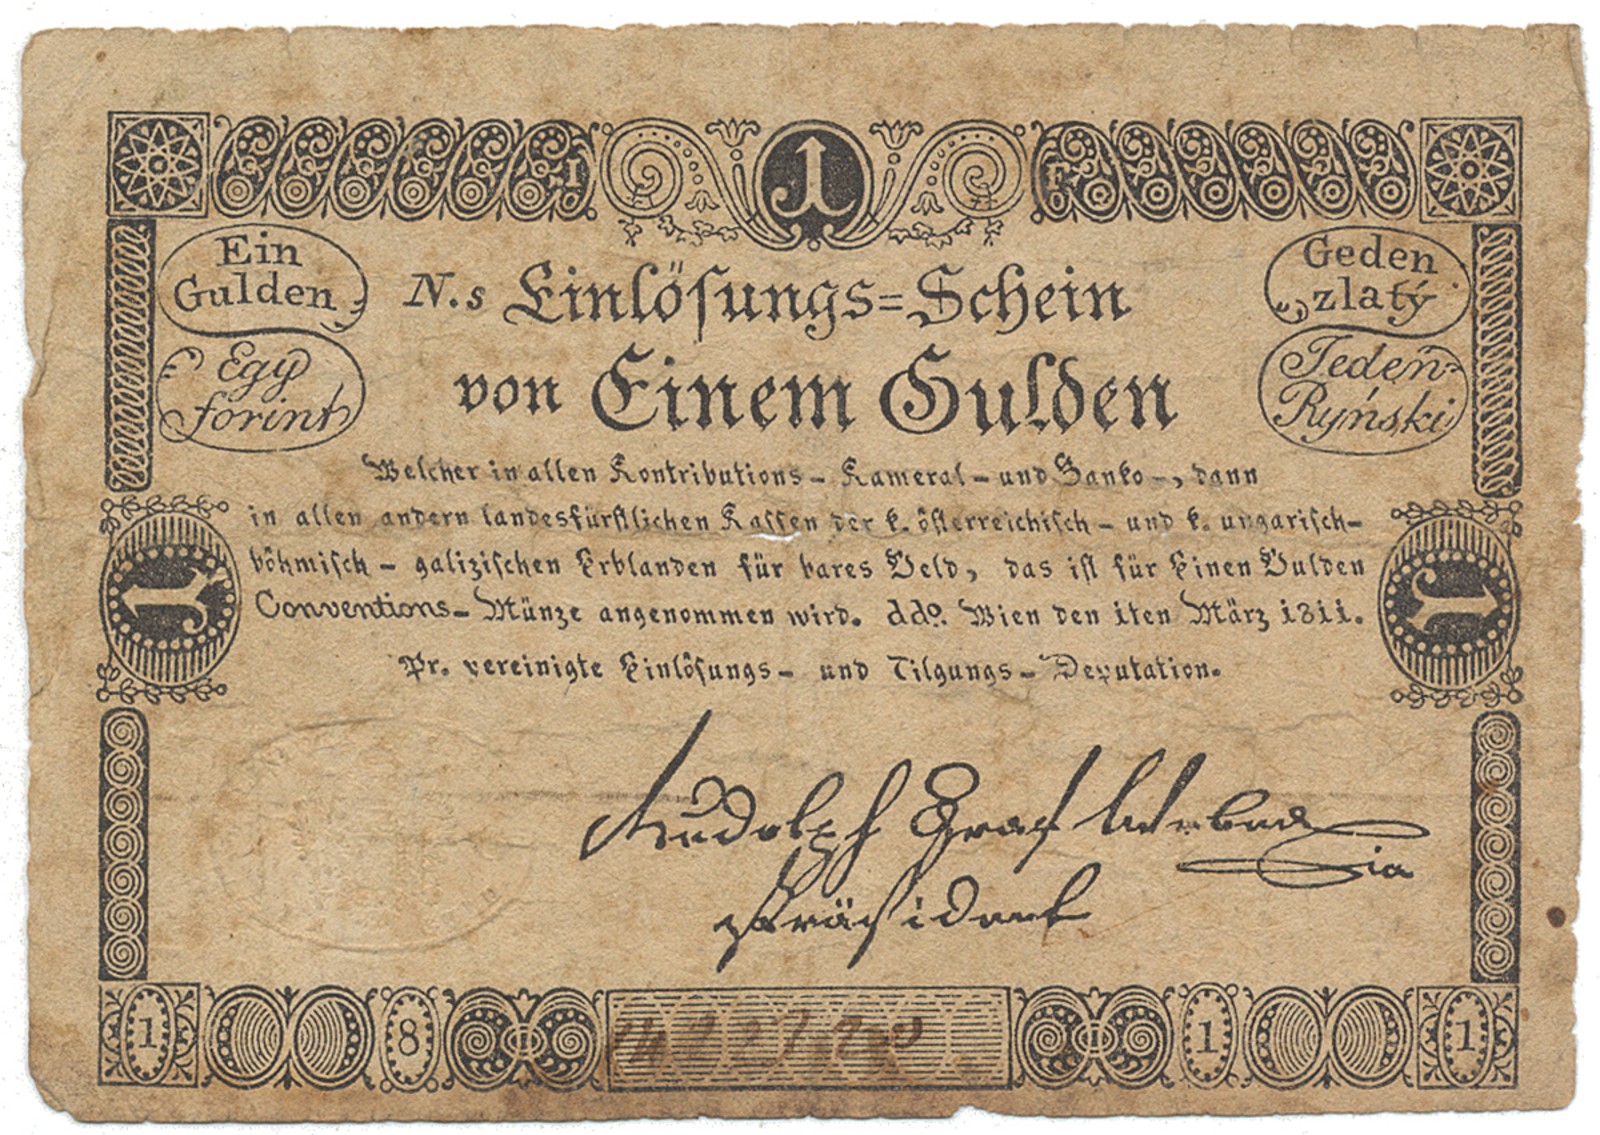 1
Ein
Gulden
Egy
forint
Geden
zlatý
Jedeń
Ryński
N.s Einlösungs=Schein
von Einem Gulden
Welcher in allen Kontributions - Kameral - und Banko -, dann
in allen andern landesfürstlichen Kassen der k. österreichisch - und k. ungarisch-
böhmisch - galizischen Erblanden für bares Geld, das ist für Einen Gulden
Conventions - Münze angenommen wird. ddo. Wien den 1ten März 1811.
Pr. vereinigte Einlösungs - und Tilgungs - Deputation.
1
1
Rudolph Graf
Präsident
1 8 1 1